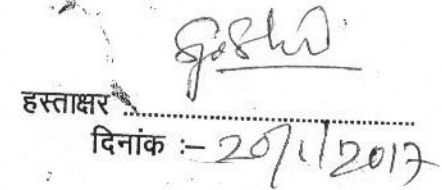 हस्ताक्षर ................................
दिनांक :– 20/1/2017